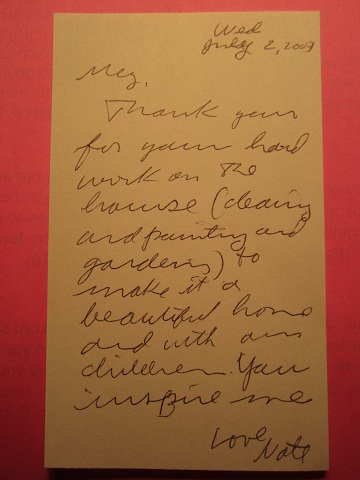 Wed
July 2, 2007
Meg,
Thank you
for your hard
work on the
house (cleaning
and painting and
gardening) to
make it a
beautiful home
and with our
children. You
inspire me
Love,
Nate